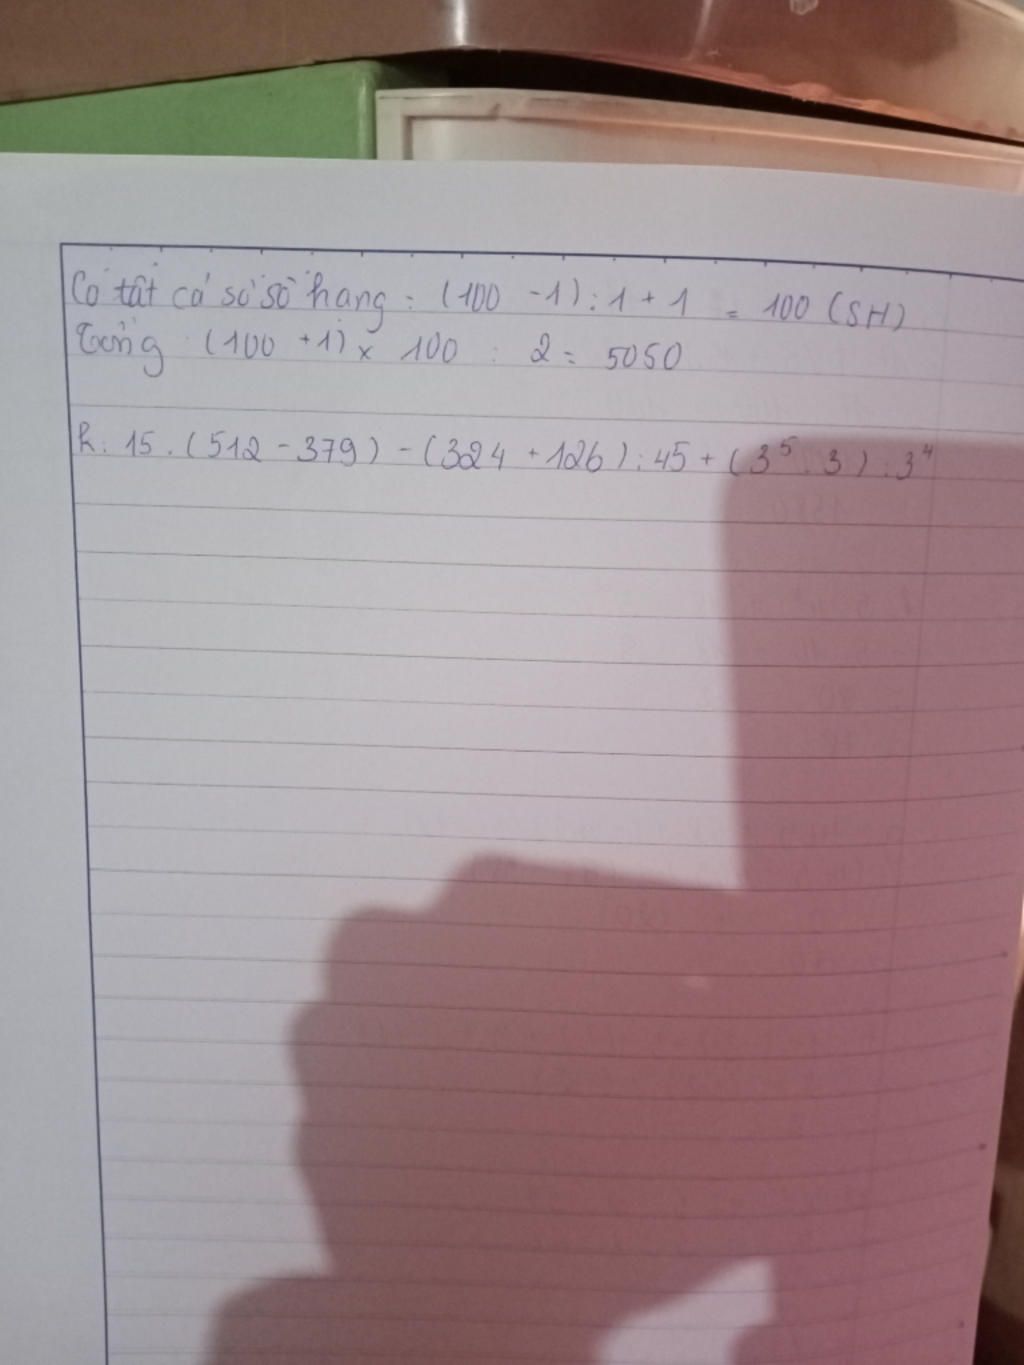 Có tất cả số số hạng : (100 - 1) : 1 + 1 = 100 (SH)
Tổng : (100 + 1) x 100 : 2 = 5050
k. 15 . (512 - 379) - (324 + 126) : 45 + (3⁵ . 3) : 3⁴